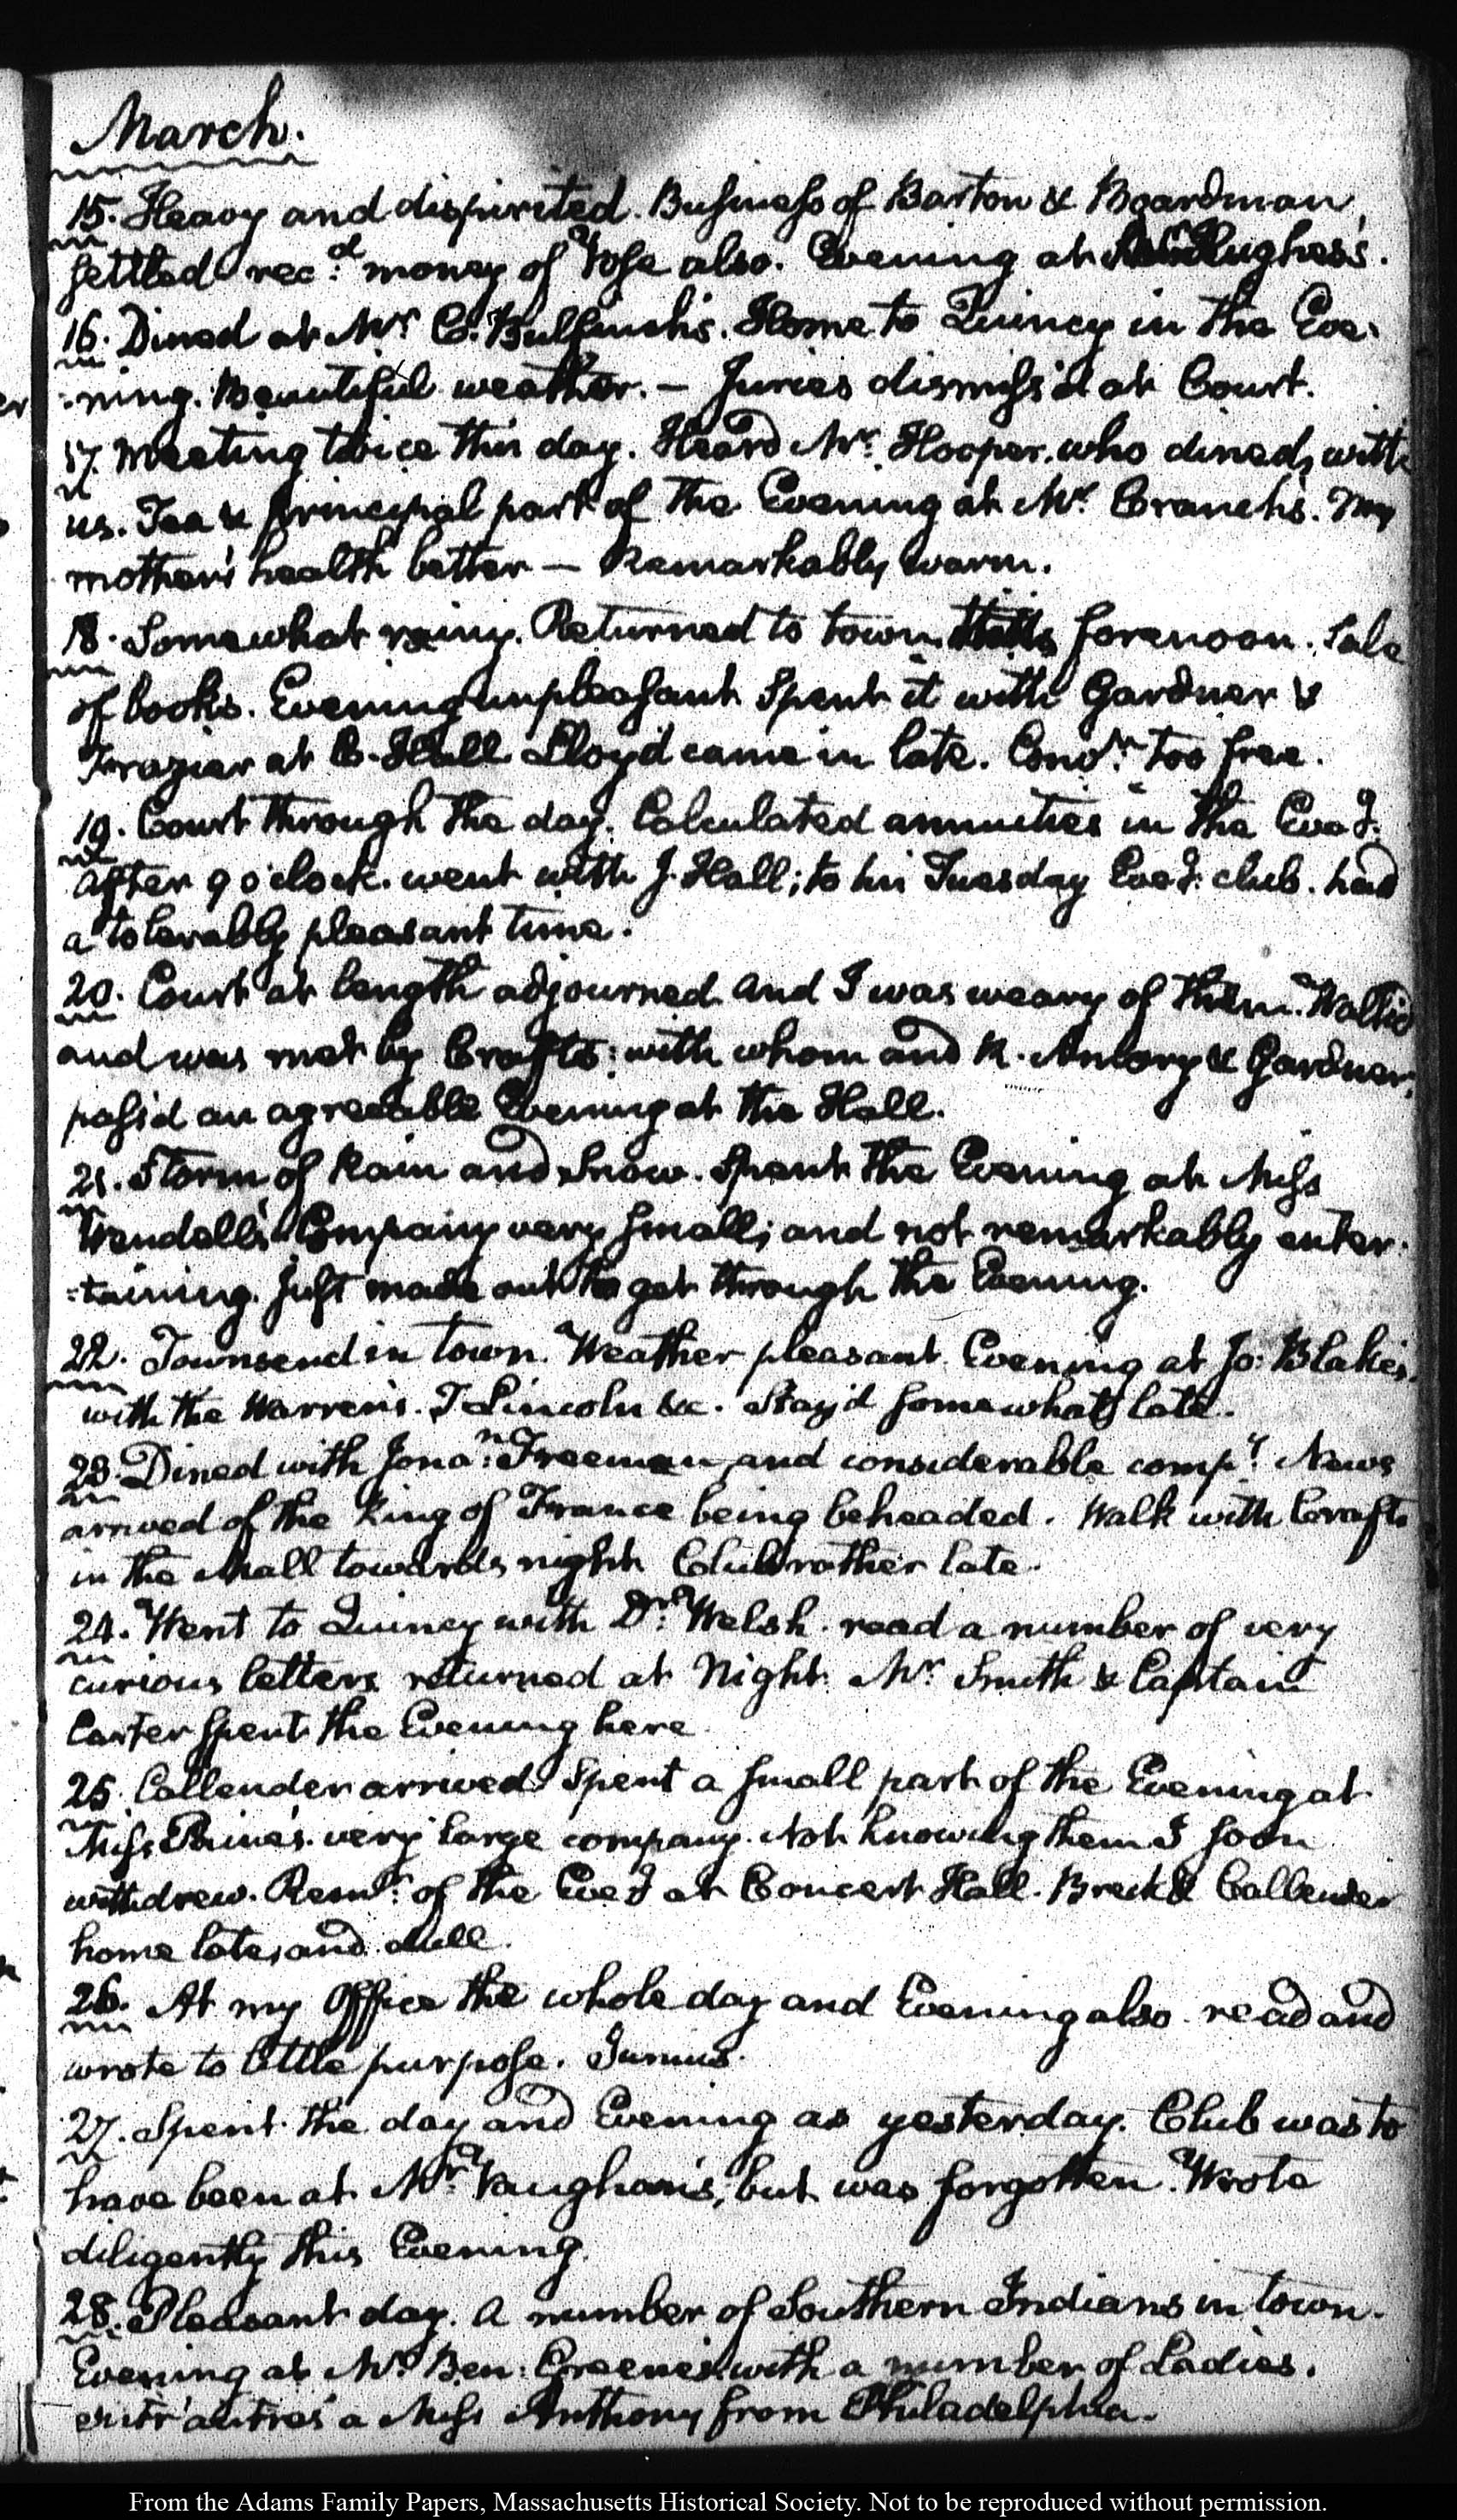 March.
15. Heavy and dispirited. Business of Barton & Boardman
settled rec.d money of Vose also. Evening at Hughes's.
16. Dined at Mr. C. Bulfinch's. Home to Quincy in the Eve-
-ning. Beautiful weather. — Juries dismiss'd at Court.
17. Meeting twice this day. Heard Mr. Hooper. who dined, with
us. Tea & principal part of the Evening at Mr. Cranch's. My
mother's health better — Remarkably warm.
18. Somewhat rainy. Returned to town this forenoon. Sale
of books. Evening unpleasant Spent it with Gardner &
Frazier at C. Hall Lloyd came in late. Conv.n too free.
19. Court through the day. Calculated annuities in the Eve.g
After 9 o'clock. went with J. Hall; to his Tuesday Eveg: club. had
a tolerably pleasant time.
20. Court at length adjourned and I was weary of them. Walk'd
and was met by Crafts: with whom and R. Amory & Gardner,
pass'd an agreeable Evening at the Hall.
21. Storm of Rain and Snow. Spent the Evening at Miss
Wendell's Company very small; and not remarkably enter-
-taining. Just made out to get through the Evening.
22. Townsend in town. Weather pleasant. Evening at Jo: Blake's.
with the Warren's. T Lincoln &c. Stay'd somewhat late.
23. Dined with Jona.n Freeman and considerable comp.y News
arrived of the King of France being beheaded. Walk with Crafts
in the Mall towards night Club rather late.
24. Went to Quincy with Dr. Welsh. read a number of very
curious letters returned at Night Mr. Smith & Captain
Carter Spent the Evening here
25. Callender arrived. Spent a small part of the Evening at
Miss Paine's. very large company. Not knowing them I soon
withdrew. Remr. of the Eveg at Concert Hall. Breck & Callender
home late, and dull.
26. At my Office the whole day and Evening also. read and
wrote to little purpose. Junius.
27. Spent the day and Evening as yesterday. Club was to
have been at Mr. Vaughan's, but was forgotten. Wrote
diligently this Evening.
28. Pleasant day. A number of Southern Indians in town.
Evening at Mr. Ben: Greene's with a number of Ladies.
entr'autres a Miss Anthony from Philadelphia.
From the Adams Family Papers, Massachusetts Historical Society. Not to be reproduced without permission.